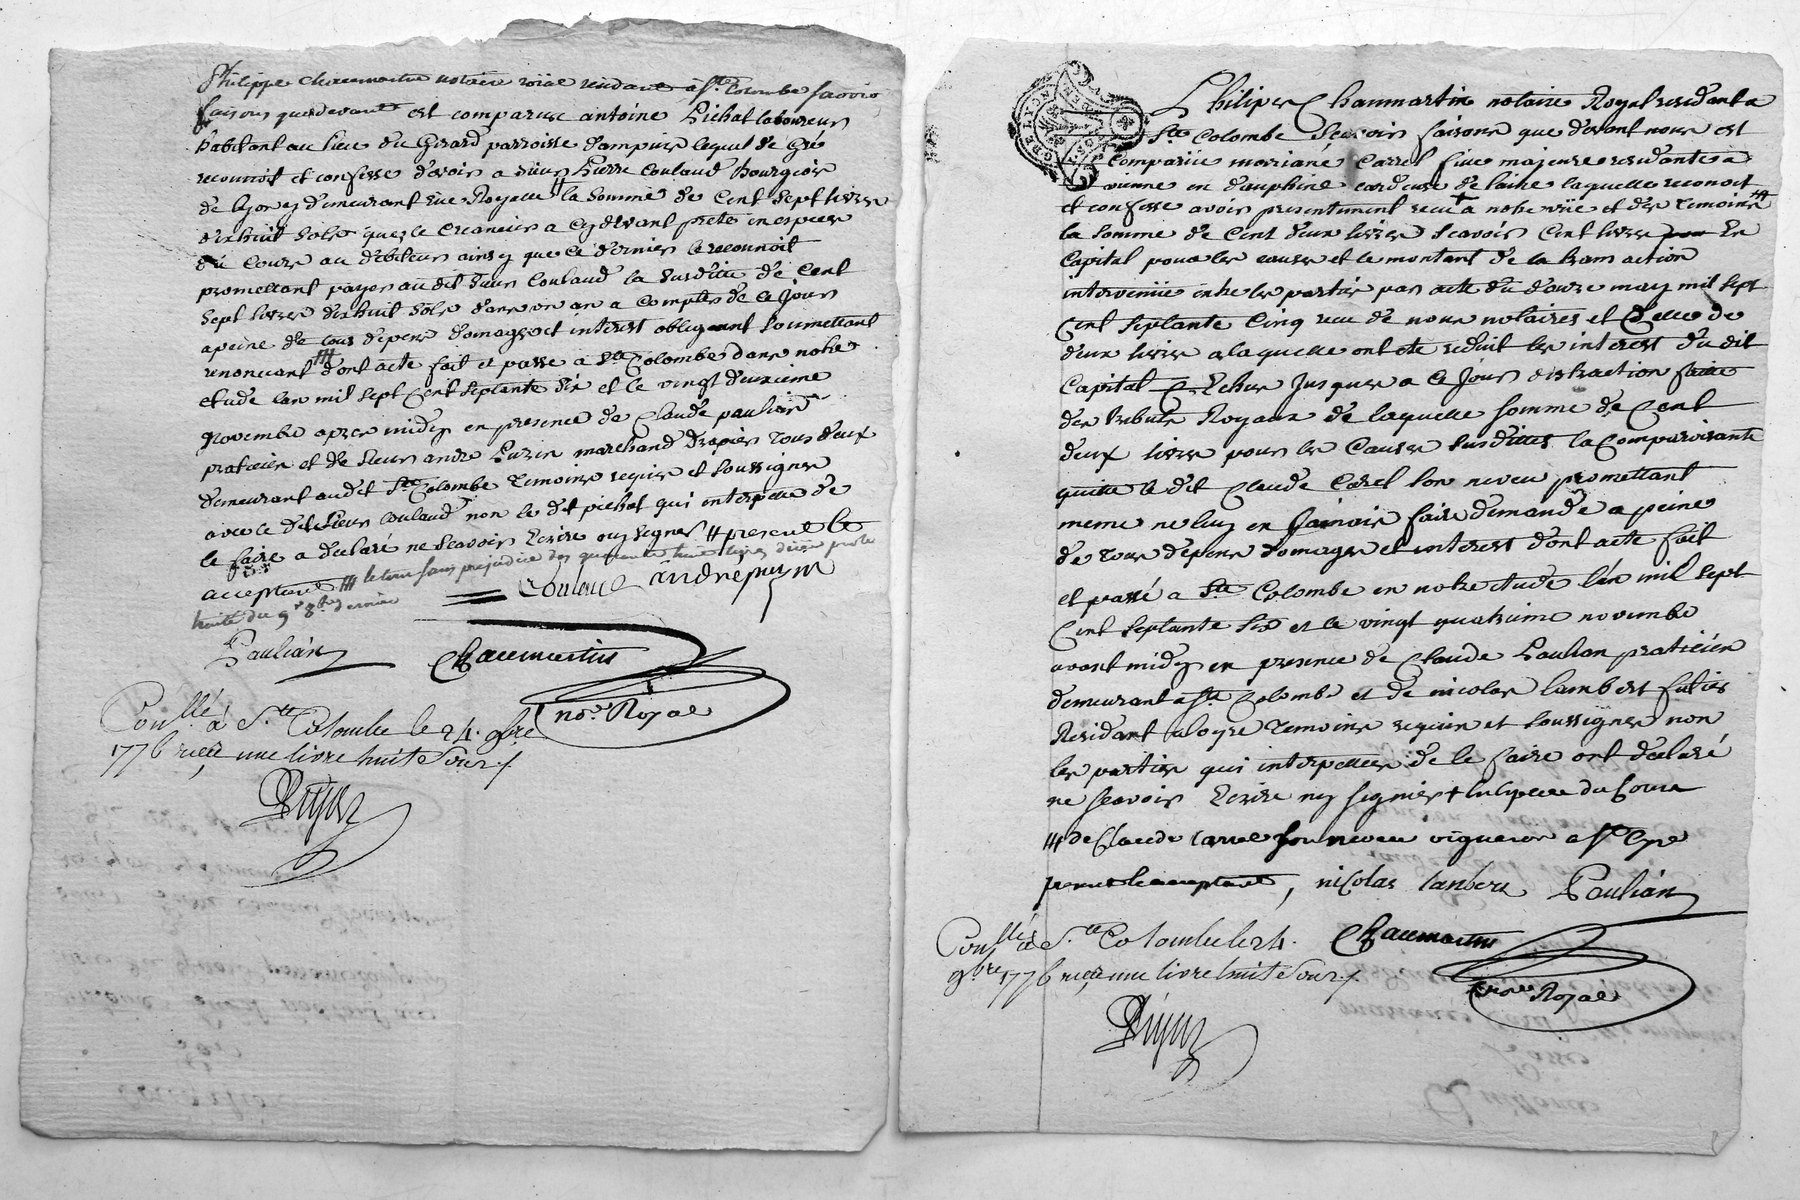 Philippe Chaumartin notaire roial residant a Ste Colombe scavoir
faisons que devant est comparu antoine Pichat laboureur
habitant au lieu du Girard parroisse dampuis lequel de gré
reconnoit et confesse devoir a sieur Pierre Coulaud Bourgeois
de lyon y demeurant rüe Royalle # la somme de Cent sept livres
dixhuit sols que le creancier a cydevant preté en especes
du cours au debiteur ainsy que ce dernier le reconnoit
promettant payer au dit sieur Coulaud la susditte de Cent
sept livres dixhuit sols dans un an a Compter de ce jour
apeine de tous depens domages et interest obligeant soumettant
renoncant ### dont acte fait et passé a Ste Colombe dans notre
etude l'an mil sept Cent septante six et le vingt deuxieme
novembre apres midy en presence de Claude paulian
praticien et de sieur andre Puzin marchand drapier tous deux
demeurant audit Ste Colombe temoins requis et soussignes
avec le dit sieur Coulaud non le dit pichat qui interpellé de
le faire a declaré ne scavoir Ecrire ny signer # present le
acceptant ### le tout sans prejudice des quarante huit livres
huitte du 9r 8bre dernier
Coulaud andrepuzin
Paulian Chaumartin
nore Royal
Conllé à S.te Colombe le 24. 9bre
1776 reçu une livre huit sous
L Philipes Chaumartin notaire Royal residant a
Ste Colombe scavoir faisons que devant nous est
Comparüe moriane Carrel fille majeure residante a
vienne en dauphiné cardeuse de laine laquelle reconoit
et confesse avoir presentement recu + a notre vüe et des temoins ###
la somme de Cent deux livres scavoir Cent livres En
Capital pour les causes et le montant de la transaction
intervenüe entre les parties par acte du douze may mil sept
Cent septante Cinq recu de nous notaires et Celle de
deux livres a laquelle ont eté reduit les interest du dit
Capital Echus jusques a ce jour distraction faitte
des tributs Royaux de laquelle somme de Cent
deux livres pour les Causes susdittes la Comparoissante
quitte le dit Claude Carel son neveu promettant
meme ne luy en jamais faire demande a peine
de tous depens domages et interest dont acte fait
et passé a Ste Colombe en notre etude l'an mil sept
Cent septante six et le vingt quatrieme novembre
avant midy en presence de Claude Paulian praticien
demeurant a Ste Colombe et de nicolas lambert
Residant a loyre temoins requis et soussignes non
les parties qui interpellées de le faire ont declaré
ne scavoir Ecrire ny signer + En especes du Cours
### de Claude Carrel son neveu vigneron a St Cyr
present le acceptant, nicolas lanbert Paulian
Conllé à S.te Colombe le 24. Chaumartin
9bre 1776 reçu une livre huit sous
nore Royal